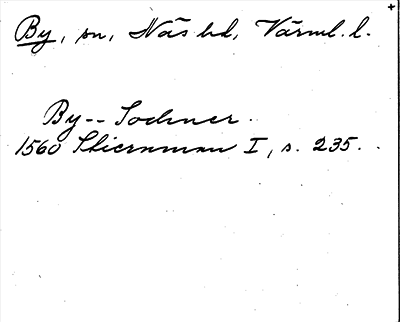 By, sn, Näs hd, Värml. l.
By-- Sochner.
1560 Stiernman I, s. 235.